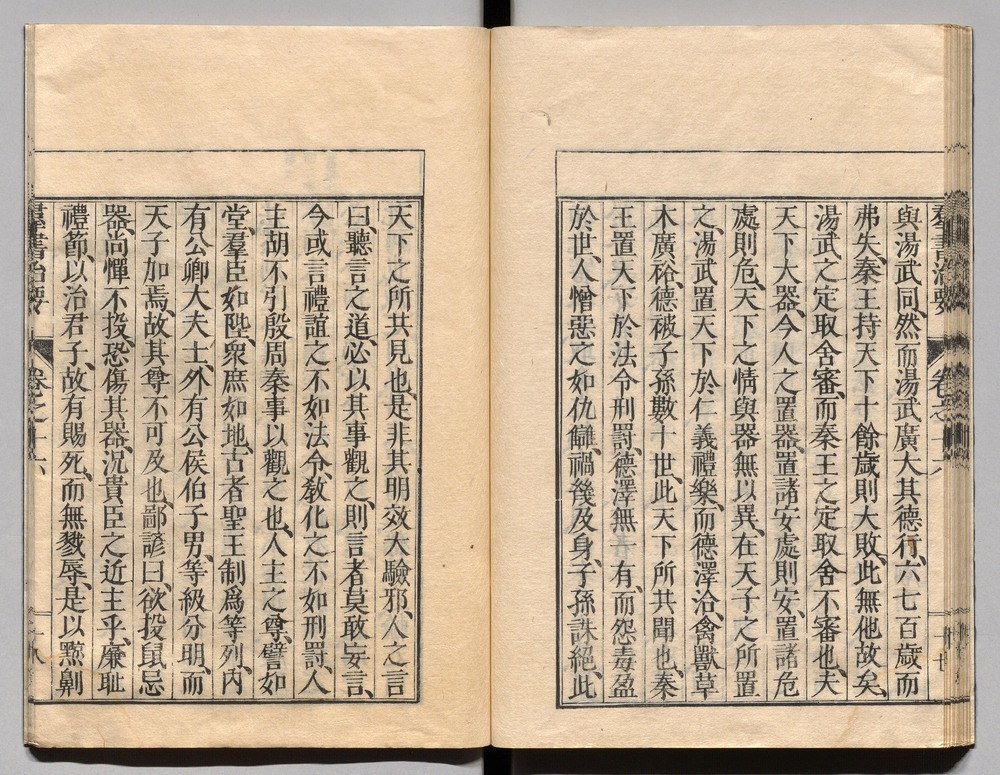 與湯武同、然而湯武廣大其德行、六七百歲而
弗失、秦王持天下十餘歲則大敗、此無他故矣、
湯武之定取舍審、而秦王之定取舍不審也、夫
天下大器、今人之置器、置諸安處則安、置諸危
處則危、天下之情與器無以異、在天子之所置
之、湯武置天下於仁義禮樂、而德澤洽、禽獸草
木廣裕、德被子孫數十世、此天下所共聞也、秦
王置天下於法令刑罰、德澤無一有、而怨毒盈
於世、人憎惡之如仇讎、禍幾及身、子孫誅絕、此
天下之所共見也、是非其明效大驗邪、人之言
曰、聽言之道、必以其事觀之、則言者莫敢妄言、
今或言禮誼之不如法令、敎化之不如刑罰、人
主胡不引殷周秦事以觀之也、人主之尊、譬如
堂、羣臣如陛、衆庶如地、古者聖王制爲等列、內
有公卿大夫士、外有公侯伯子男、等級分明、而
天子加焉、故其尊不可及也、鄙諺曰、欲投鼠忌
器、尚憚不投、恐傷其器、況貴臣之近主乎、廉耻
禮節、以治君子、故有賜死、而無戮辱、是以黥劓
羣書治要 卷之十六